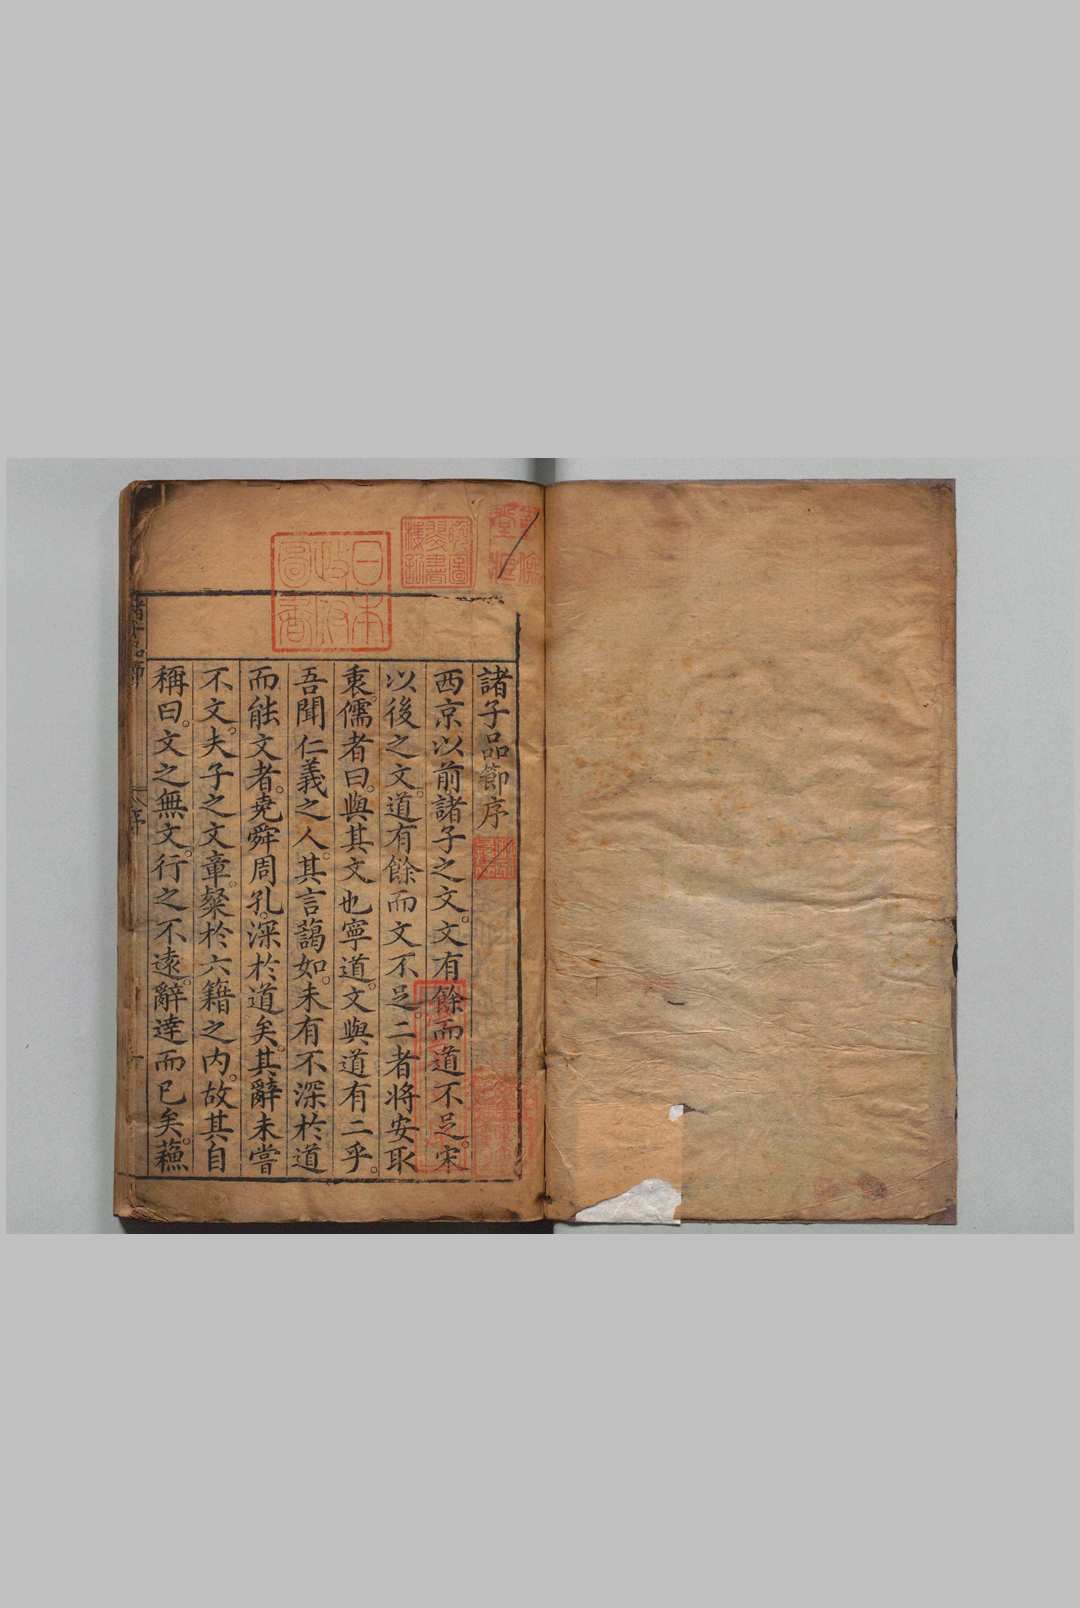 諸子品節序
西京以前諸子之文。文有餘而道不足。宋
以後之文。道有餘而文不足。二者將安取
衷。儒者曰。與其文也寧道。文與道有二乎。
吾聞仁義之人。其言藹如。未有不深於道
而能文者。堯舜周孔。深於道矣。其辭未嘗
不文。夫子之文章。粲於六籍之内。故其自
稱曰。文之無文。行之不遠。辭達而已矣。蘓
諸子品節
序
日本
政府
圖書